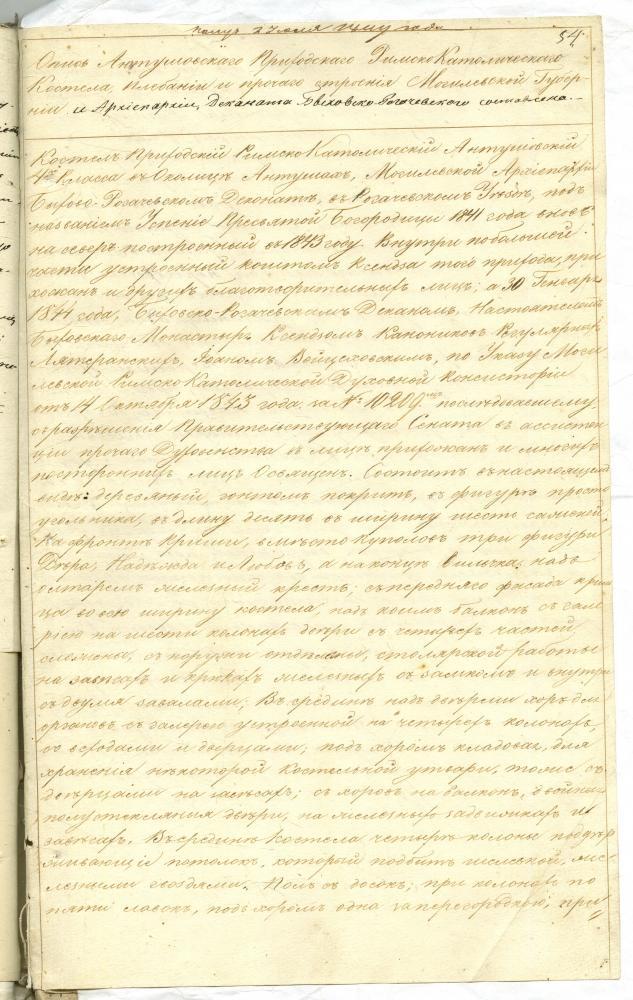 54
Опись Антушовскаго Приходскаго Римско Католическаго
Костела, Плебаніи и прочаго строенія Могилевской Губер-
ніи и Архіепархіи, Деканата Быховско-Рогачевскаго составлена.
Костелъ Приходскій Римско Католическій Антушовскій
4го Класса въ Околицѣ Антушахъ, Могилевской Архіепархіи
Быхово-Рогачевскомъ Деканатѣ, въ Рогачевскомъ Уѣздѣ, подъ
названіемъ Успеніе Пресвятой Богородицы 1841 года вновь
на северъ построенный въ 1843 году. Внутри по большей
части устроенный коштомъ Ксендза того прихода, при
хожанъ и другихъ благотворительныхъ лицъ; а 30 Генваря
1844 года, Быховско-Рогачевскимъ Деканомъ, Настоятелемъ
Быховскаго Монастыря Ксендзомъ Каноникомъ Регулярныхъ
Лятеранскихъ, Іоаномъ Войцеховскимъ, по Указу Моги-
левской Римско Католической Духовной Консисторіи
отъ 14 Октября 1843 года за № 10209 последовавшему,
съ разрешенія Правительствующаго Сената въ ассистен
ціи прочаго Духовенства въ лицѣ прихожанъ и многихъ
постороннихъ лицъ Освященъ. Состоитъ въ настоящемъ
видѣ: деревянный, гонтомъ покрытъ, въ фигурѣ прямо
угольника, въ длину десять въ ширину шесть саженей.
На фронтѣ крыши, вместо куполовъ три фигуры
Вѣра, Надежда и Любовь, а на концѣ надъ
олтаремъ железный крестъ; съ передняго фасада крыль
ца во всю ширину костела, надъ коимъ балконъ съ гале
ріею на шести колонахъ двери съ четырехъ частей
сложены, съ наружи столярской работы
на завесахъ и крюкахъ железныхъ съ замкомъ и внутри
съ двумя завалами; Въ срединѣ надъ дверьми хоръ для
органовъ съ галереею устроенной на четырехъ колонахъ,
со всходами и дверцами; подъ хоромъ кладовая, для
храненія некоторой Костельной утвари, тоже съ
дверцами на завесахъ; съ хоровъ на балконъ, двойныя
полустеклянныя двери, на железныхъ задвижкахъ и
завесахъ. Въ срединѣ Костела четыре колоны поддер
живающіе потолокъ, который подбитъ шелевкой, же-
лезными гвоздями. Полъ съ досокъ; при колонахъ по
пяти лавокъ, подъ хоромъ одна за перегородкою, при